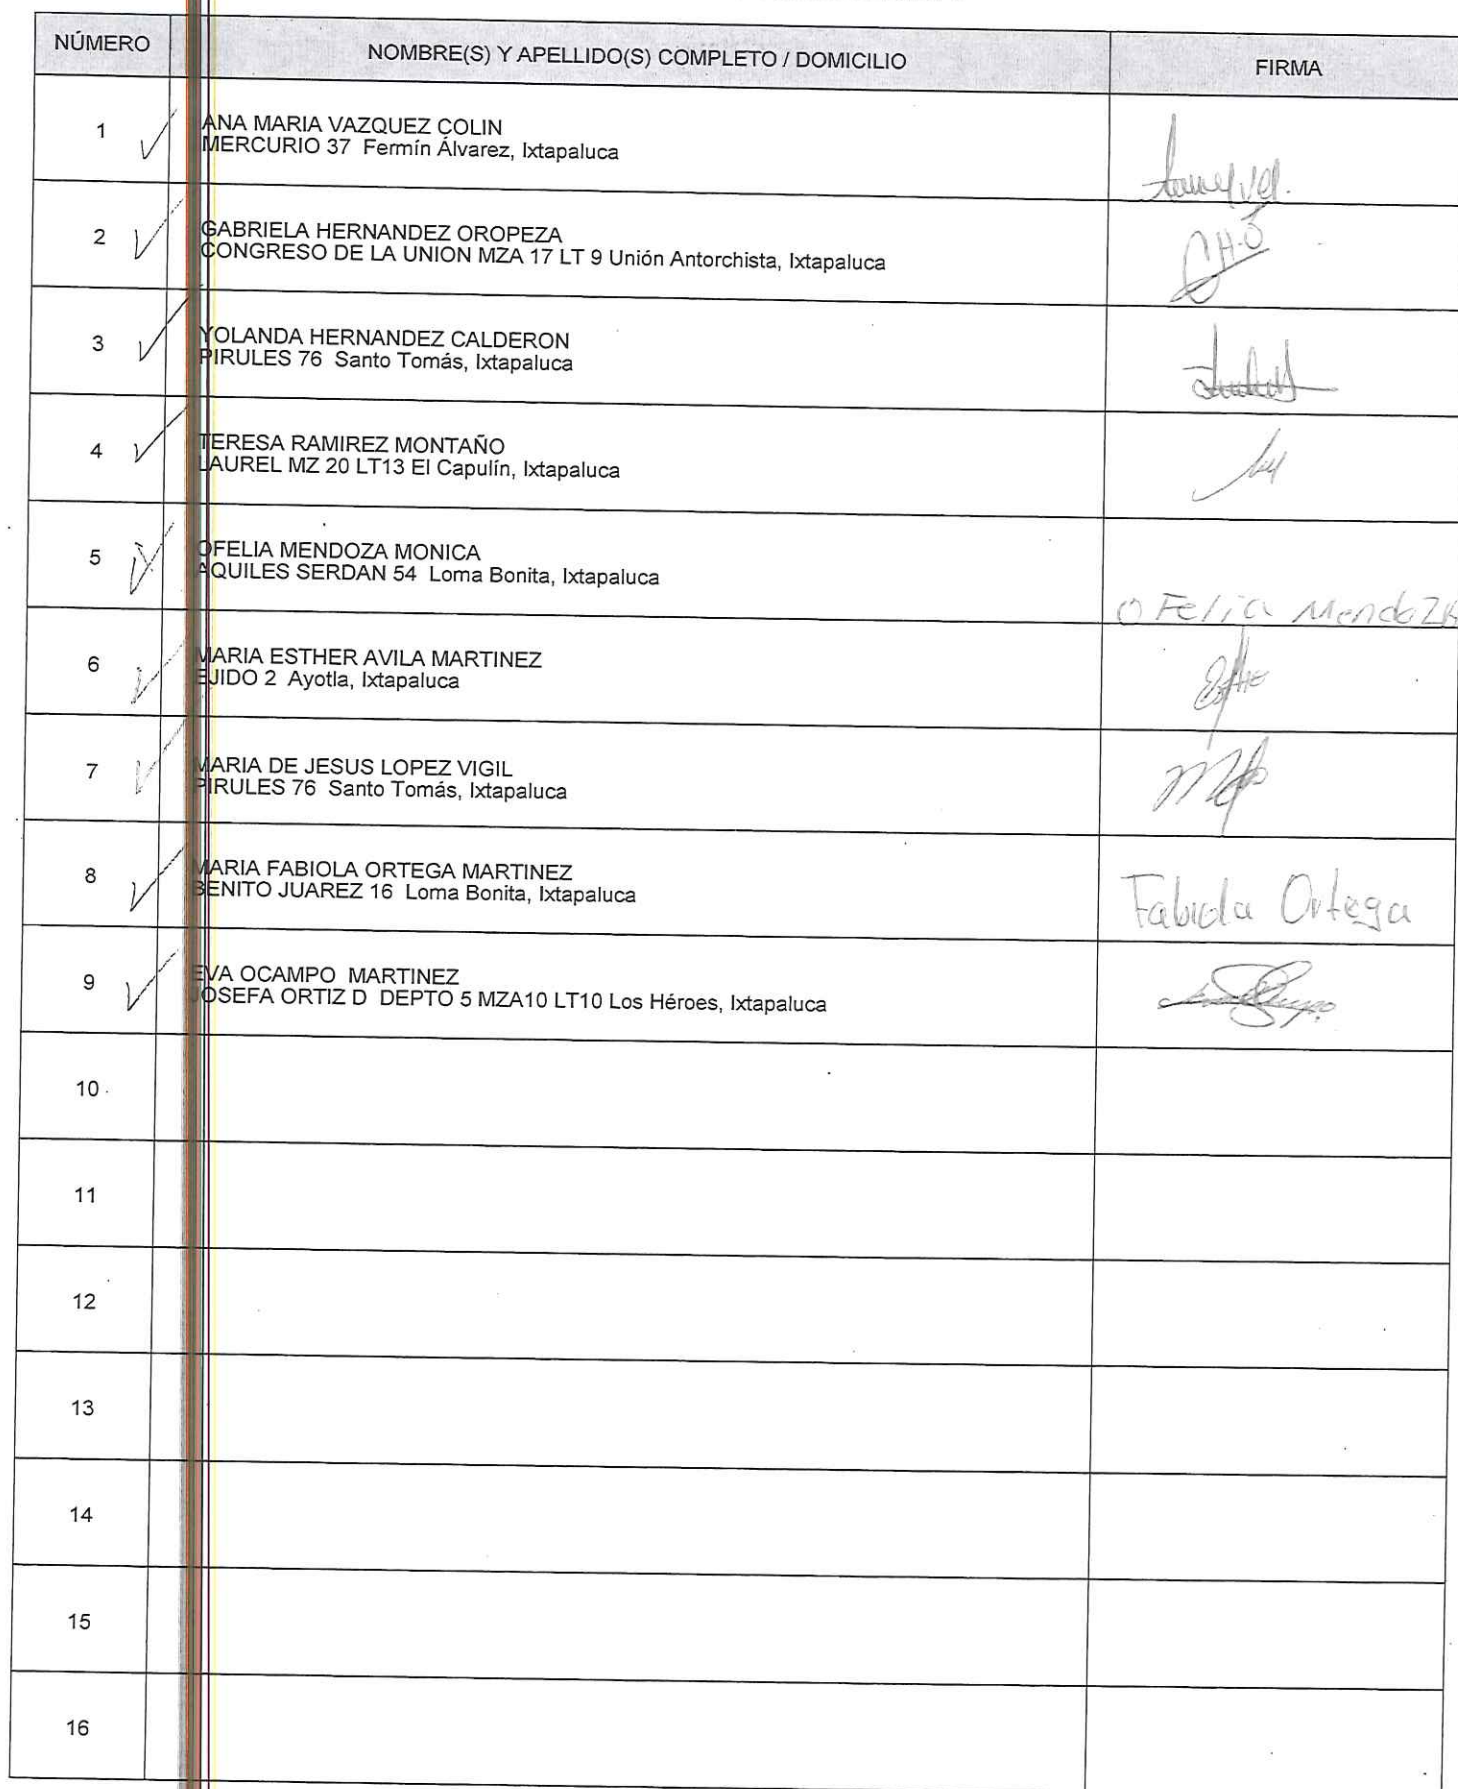 NÚMERO
NOMBRE(S) Y APELLIDO(S) COMPLETO / DOMICILIO
FIRMA
1
ANA MARIA VAZQUEZ COLIN
MERCURIO 37 Fermín Álvarez, Ixtapaluca
2
GABRIELA HERNANDEZ OROPEZA
CONGRESO DE LA UNION MZA 17 LT 9 Unión Antorchista, Ixtapaluca
3
YOLANDA HERNANDEZ CALDERON
PIRULES 76 Santo Tomás, Ixtapaluca
4
TERESA RAMIREZ MONTAÑO
LAUREL MZ 20 LT13 El Capulín, Ixtapaluca
5
OFELIA MENDOZA MONICA
AQUILES SERDAN 54 Loma Bonita, Ixtapaluca
OFelia MendoZa
6
MARIA ESTHER AVILA MARTINEZ
EJIDO 2 Ayotla, Ixtapaluca
7
MARIA DE JESUS LOPEZ VIGIL
PIRULES 76 Santo Tomás, Ixtapaluca
8
MARIA FABIOLA ORTEGA MARTINEZ
BENITO JUAREZ 16 Loma Bonita, Ixtapaluca
Fabiola Ortega
9
EVA OCAMPO MARTINEZ
JOSEFA ORTIZ D DEPTO 5 MZA10 LT10 Los Héroes, Ixtapaluca
10
11
12
13
14
15
16